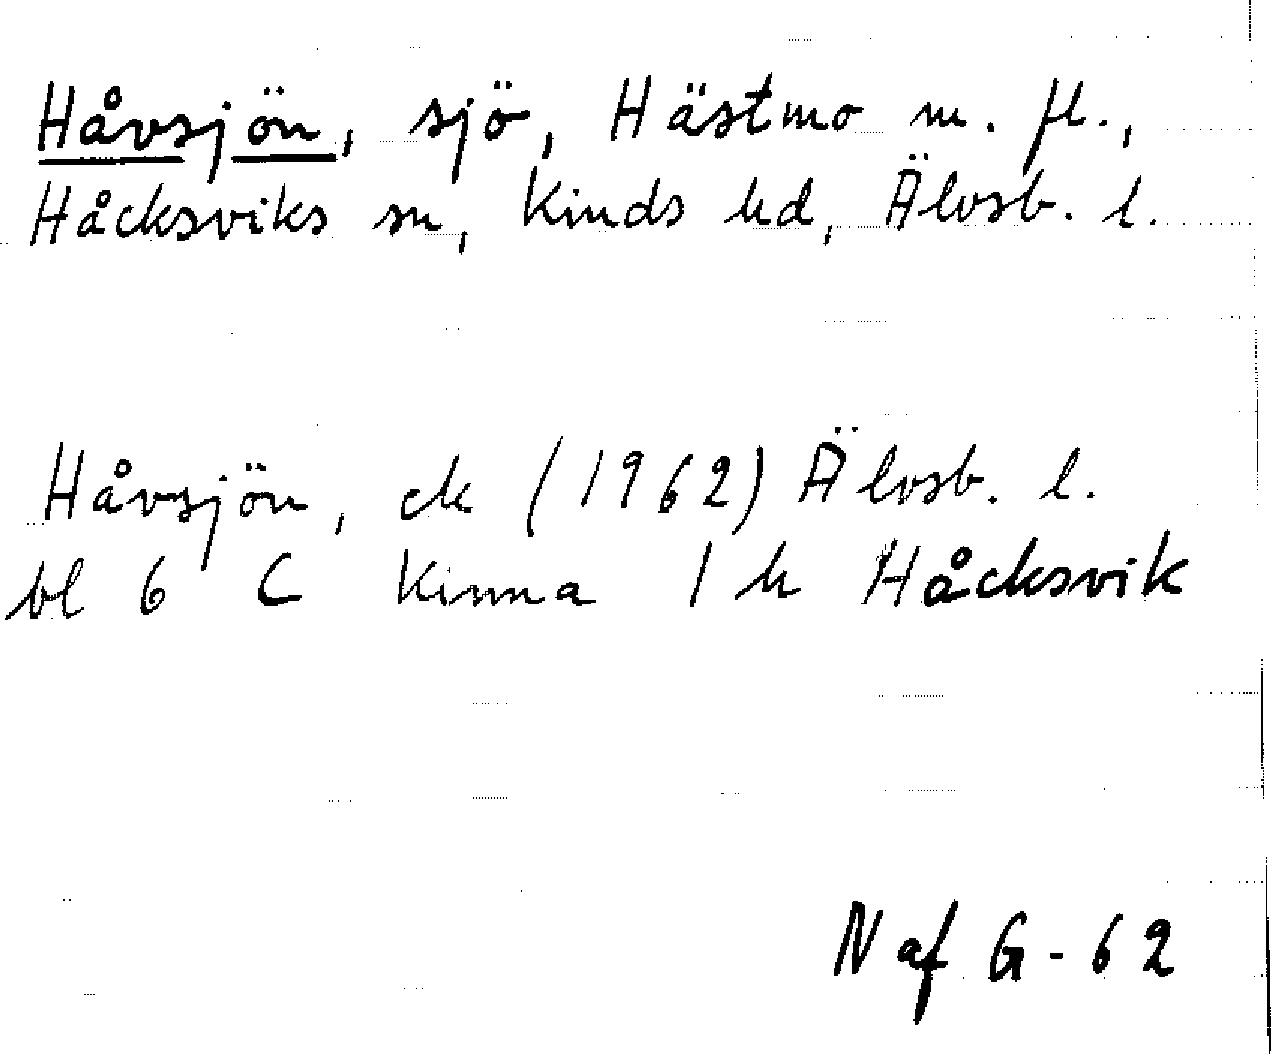 Håvsjön, sjö, Hästmo m. fl.,
Håcksviks sn, Kinds hd, Älvsb. l.
Håvsjön, ek (1962) Älvsb. l.
bl 6 C Kinna 1 h Håcksvik
N af G-62